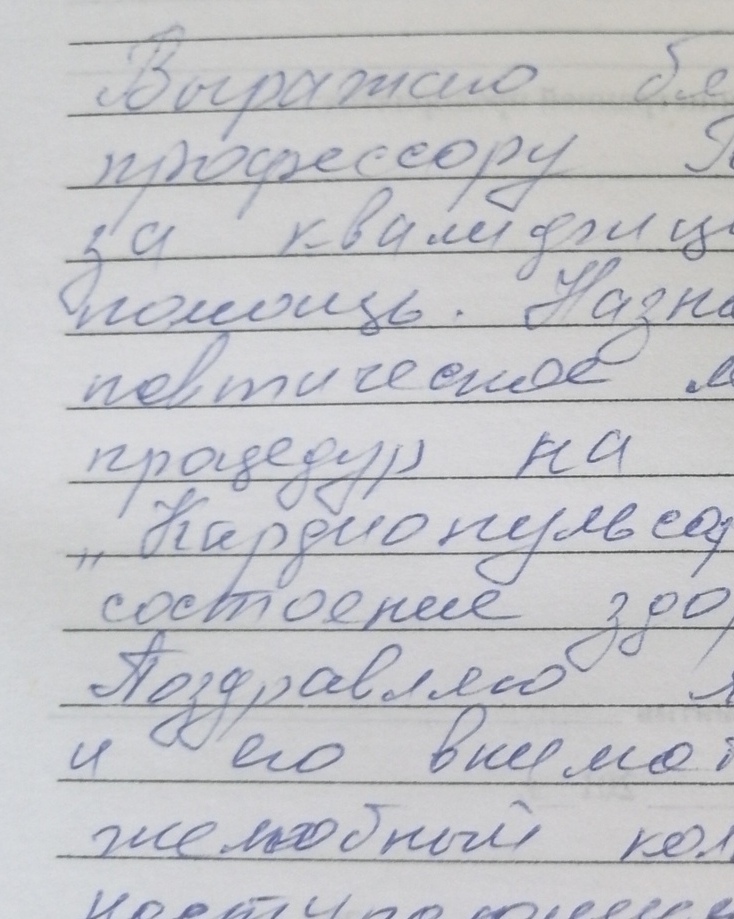 Выражаю бл
профессору П
за квалифици
помощь. Назна
певтическое м
процедур на
„Кардиопульсар
состоение здор
Поздравляю
и его внимат
желюбный кол
наступающим